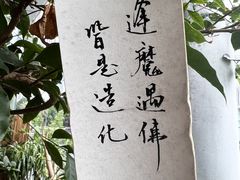 逢魔遇佛
皆是造化